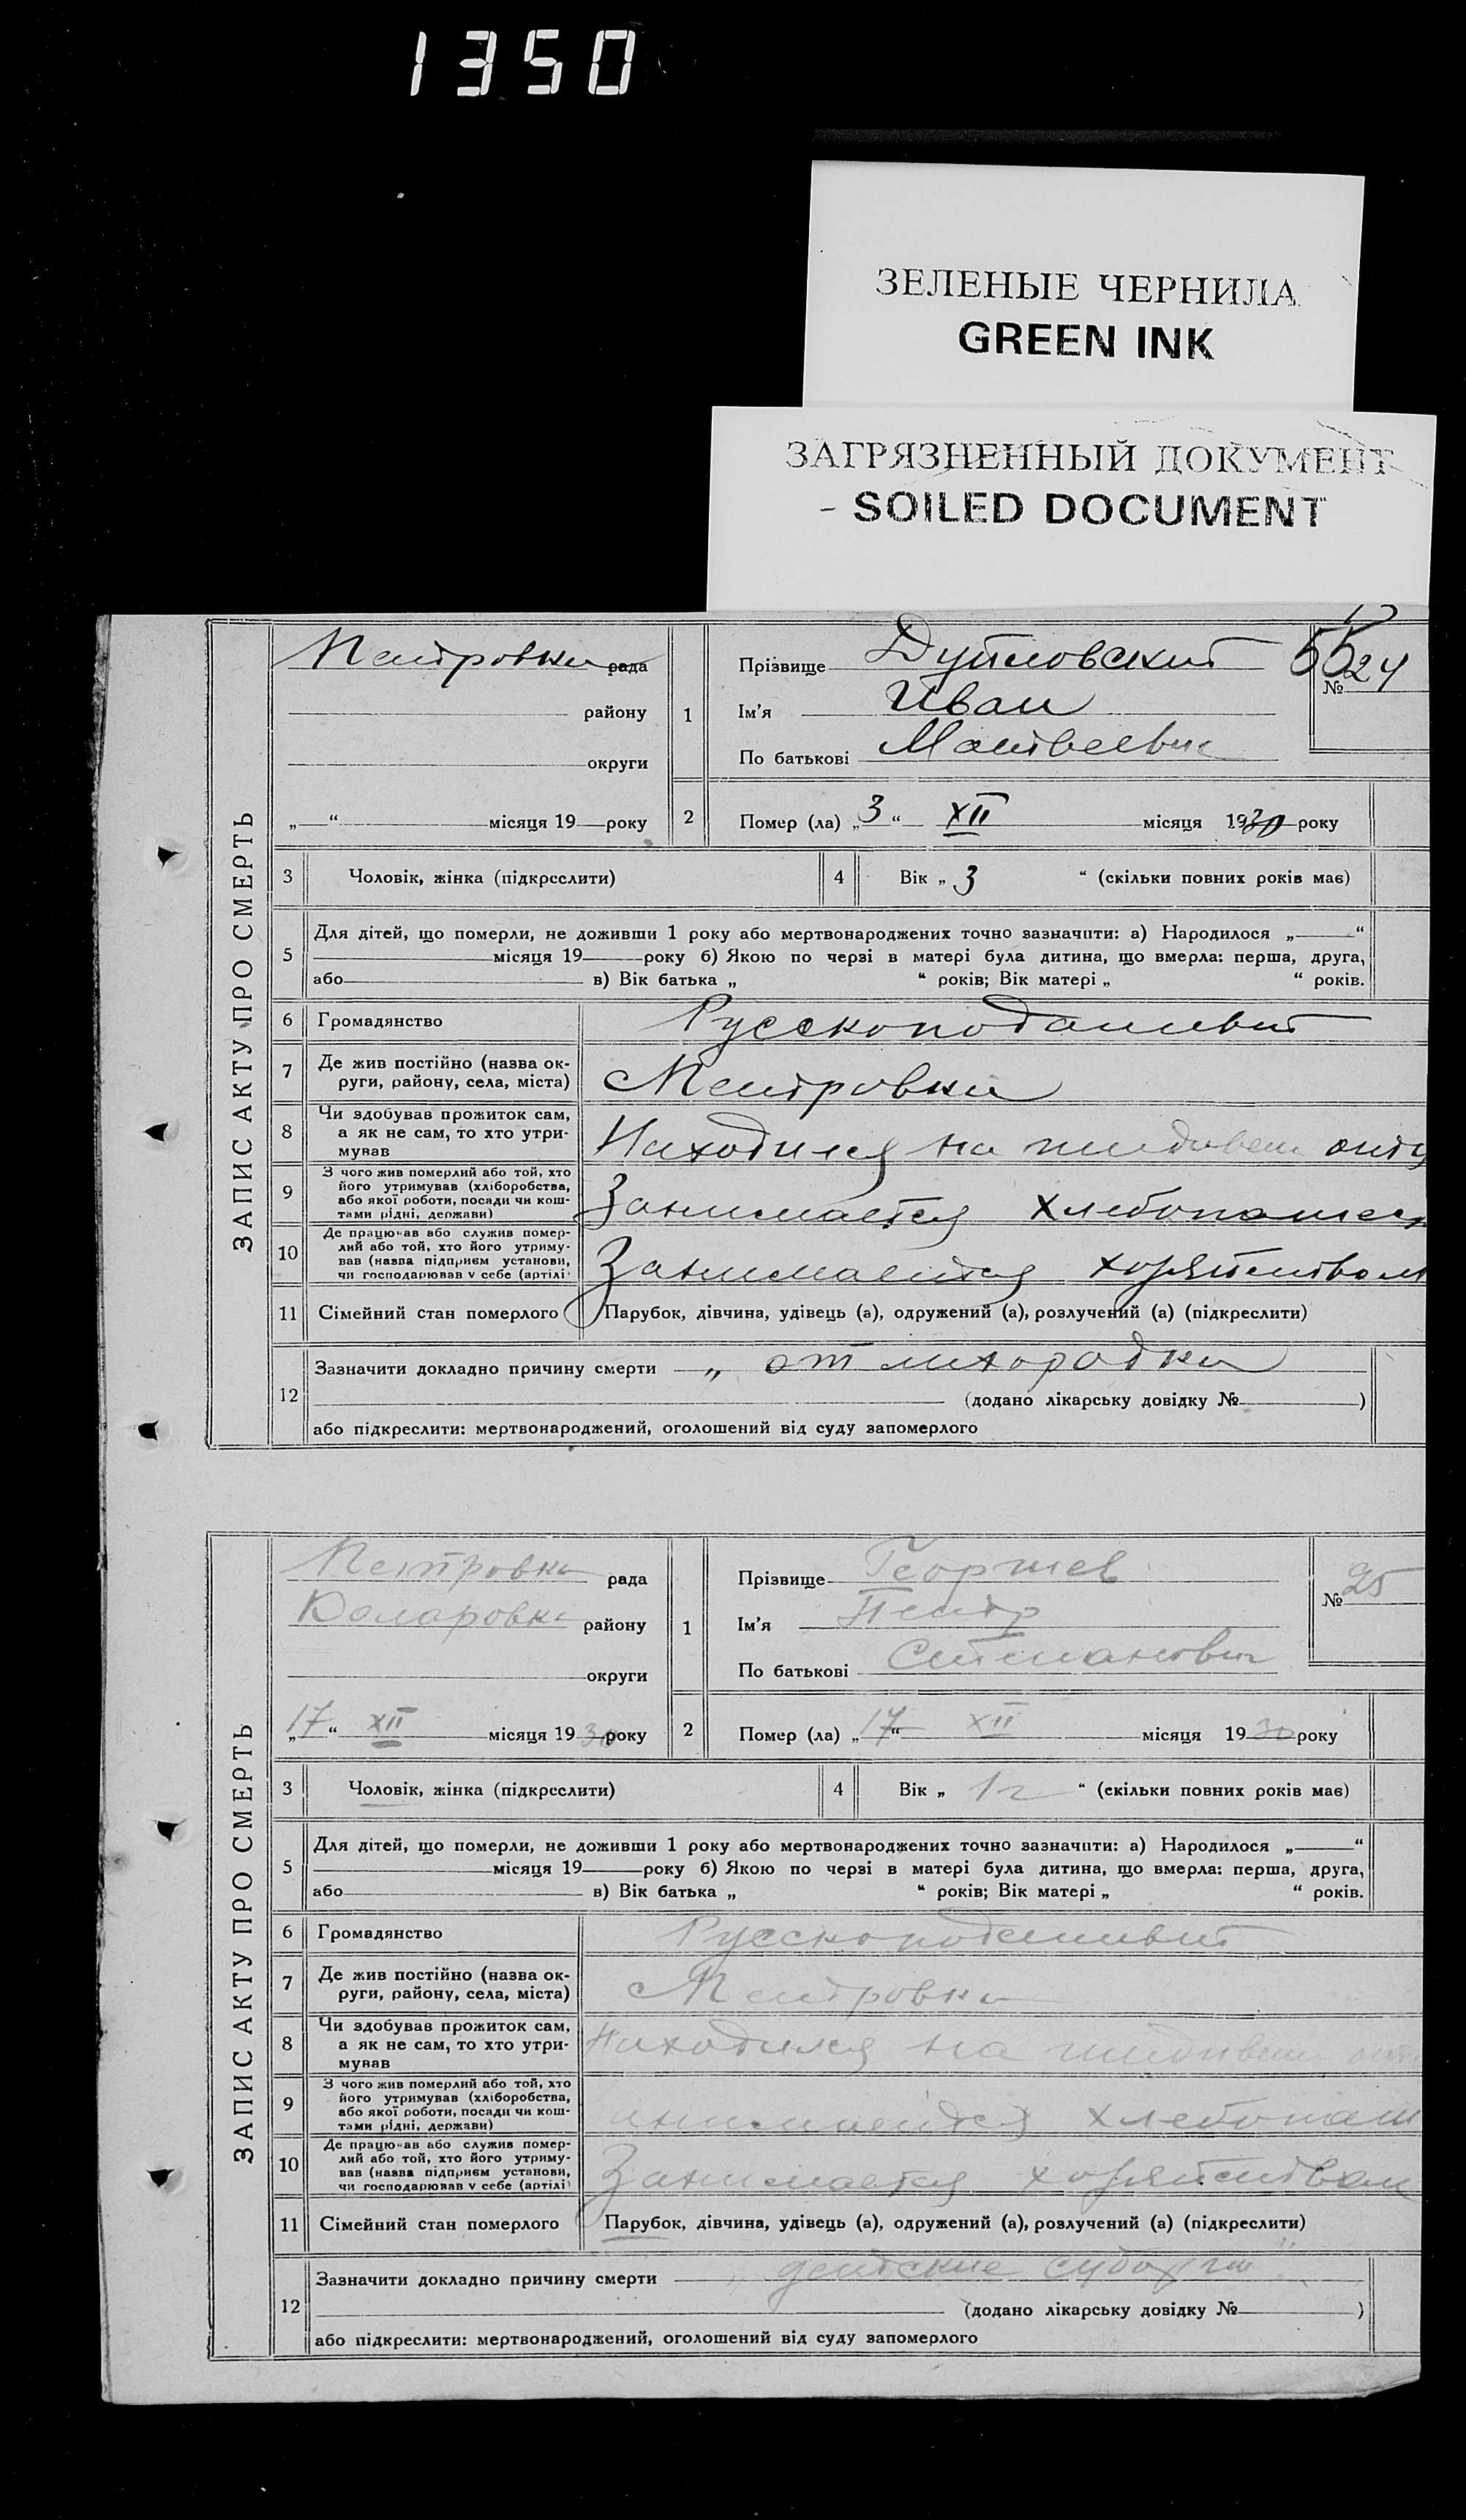 1350
ЗЕЛЕНЫЕ ЧЕРНИЛА
GREEN INK
ЗАГРЯЗНЕННЫЙ ДОКУМЕНТ
- SOILED DOCUMENT
ЗАПИС АКТУ ПРО СМЕРТЬ
Петровка рада
району
округи
„ “ місяця 19 року
1
Прізвище
Ім’я Иван
По батькові Матвеевич
55
№ 24
2 Помер (ла) „ 3 “ XII місяця 1930 року
3 Чоловік, жінка (підкреслити)
4 Вік „ 3 “ (скільки повних років має)
5 Для дітей, що померли, не доживши 1 року або мертвонароджених точно зазначити: а) Народилося „ “
місяця 19 року б) Якою по черзі в матері була дитина, що вмерла: перша, друга,
або в) Вік батька „ “ років; Вік матері „ “ років.
6 Громадянство Русскоподанный
7 Де жив постійно (назва ок-
руги, району, села, міста) Петровка
8 Чи здобував прожиток сам,
а як не сам, то хто утри-
мував Находился на
9 З чого жив померлий або той, хто
його утримував (хліборобства,
або якої роботи, посади чи кош-
тами рідні, держави) Занимается
10 Де працював або служив помер-
лий або той, хто його утриму-
вав (назва підприєм установи,
чи господарював у себе (артілі) Занимается хозяйством
11 Сімейний стан померлого Парубок, дівчина, удівець (а), одружений (а), розлучений (а) (підкреслити)
12 Зазначити докладно причину смерти „ от лихорадки
(додано лікарську довідку № )
або підкреслити: мертвонароджений, оголошений від суду запомерлого
ЗАПИС АКТУ ПРО СМЕРТЬ
Петровка рада
Коларовка району
округи
„ 17 “ XII місяця 1930 року
1
Прізвище Георгиев
Ім’я Петр
По батькові
№ 25
2 Помер (ла) „ 17 “ XII місяця 1930 року
3 Чоловік, жінка (підкреслити)
4 Вік „ 1 г “ (скільки повних років має)
5 Для дітей, що померли, не доживши 1 року або мертвонароджених точно зазначити: а) Народилося „ “
місяця 19 року б) Якою по черзі в матері була дитина, що вмерла: перша, друга,
або в) Вік батька „ “ років; Вік матері „ “ років.
6 Громадянство Русскоподанный
7 Де жив постійно (назва ок-
руги, району, села, міста) Петровка
8 Чи здобував прожиток сам,
а як не сам, то хто утри-
мував Находился на
9 З чого жив померлий або той, хто
його утримував (хліборобства,
або якої роботи, посади чи кош-
тами рідні, держави)
10 Де працював або служив помер-
лий або той, хто його утриму-
вав (назва підприєм установи,
чи господарював у себе (артілі) Занимается хозяйством
11 Сімейний стан померлого Парубок, дівчина, удівець (а), одружений (а), розлучений (а) (підкреслити)
12 Зазначити докладно причину смерти „ детские
(додано лікарську довідку № )
або підкреслити: мертвонароджений, оголошений від суду запомерлого